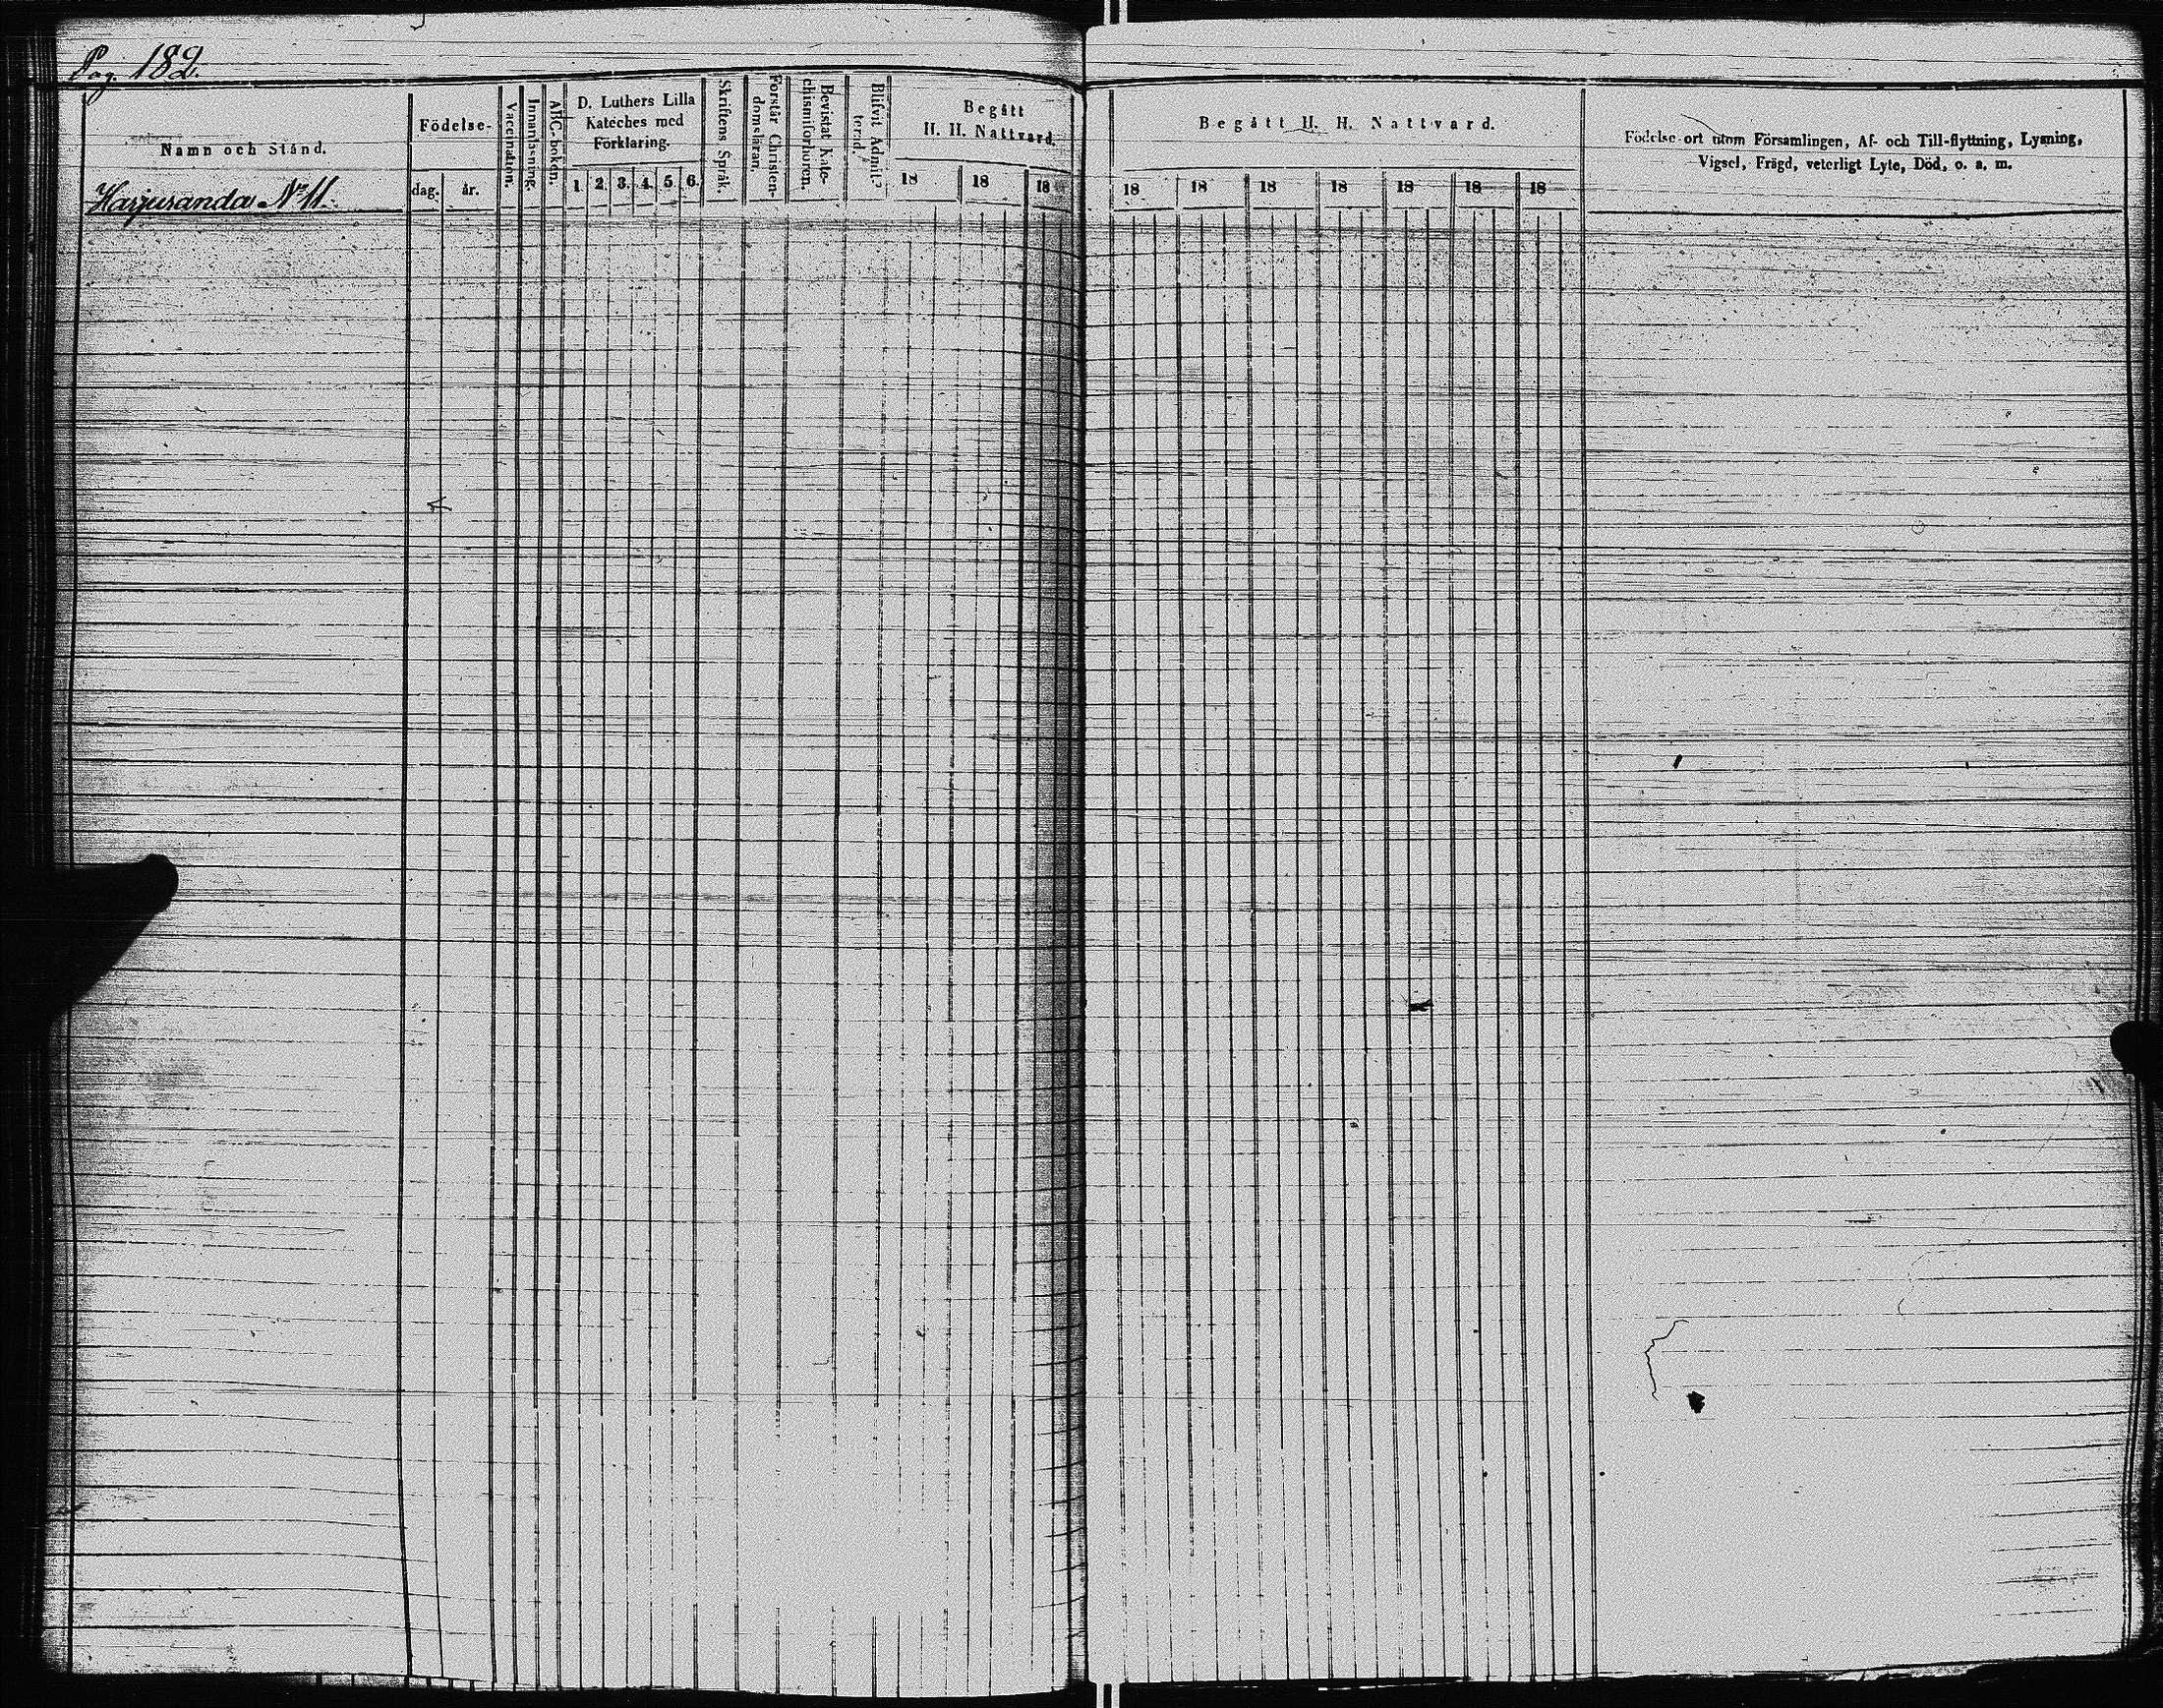 Pag. 182.
Namn och Stånd.
Harjuranda No 11.
Födelse-
dag. år.
Vaccination.
Innanläsning.
ABC-boken.
D. Luthers Lilla
Kateches med
Förklaring.
1. 2. 3. 4. 5. 6.
Skriftens Språk.
Förstår Christen-
domsläran.
Bevistat Kate-
chismiförhören.
Blifvit Admit-
terad.
Begått
H. H. Nattvard.
18 18 18
Begått H. H. Nattvard.
18 18 18 18 18 18 18
Födelse-ort utom Församlingen, Af- och Till-flyttning, Lysning,
Vigsel, Frägd, veterligt Lyte, Död, o. s. m.